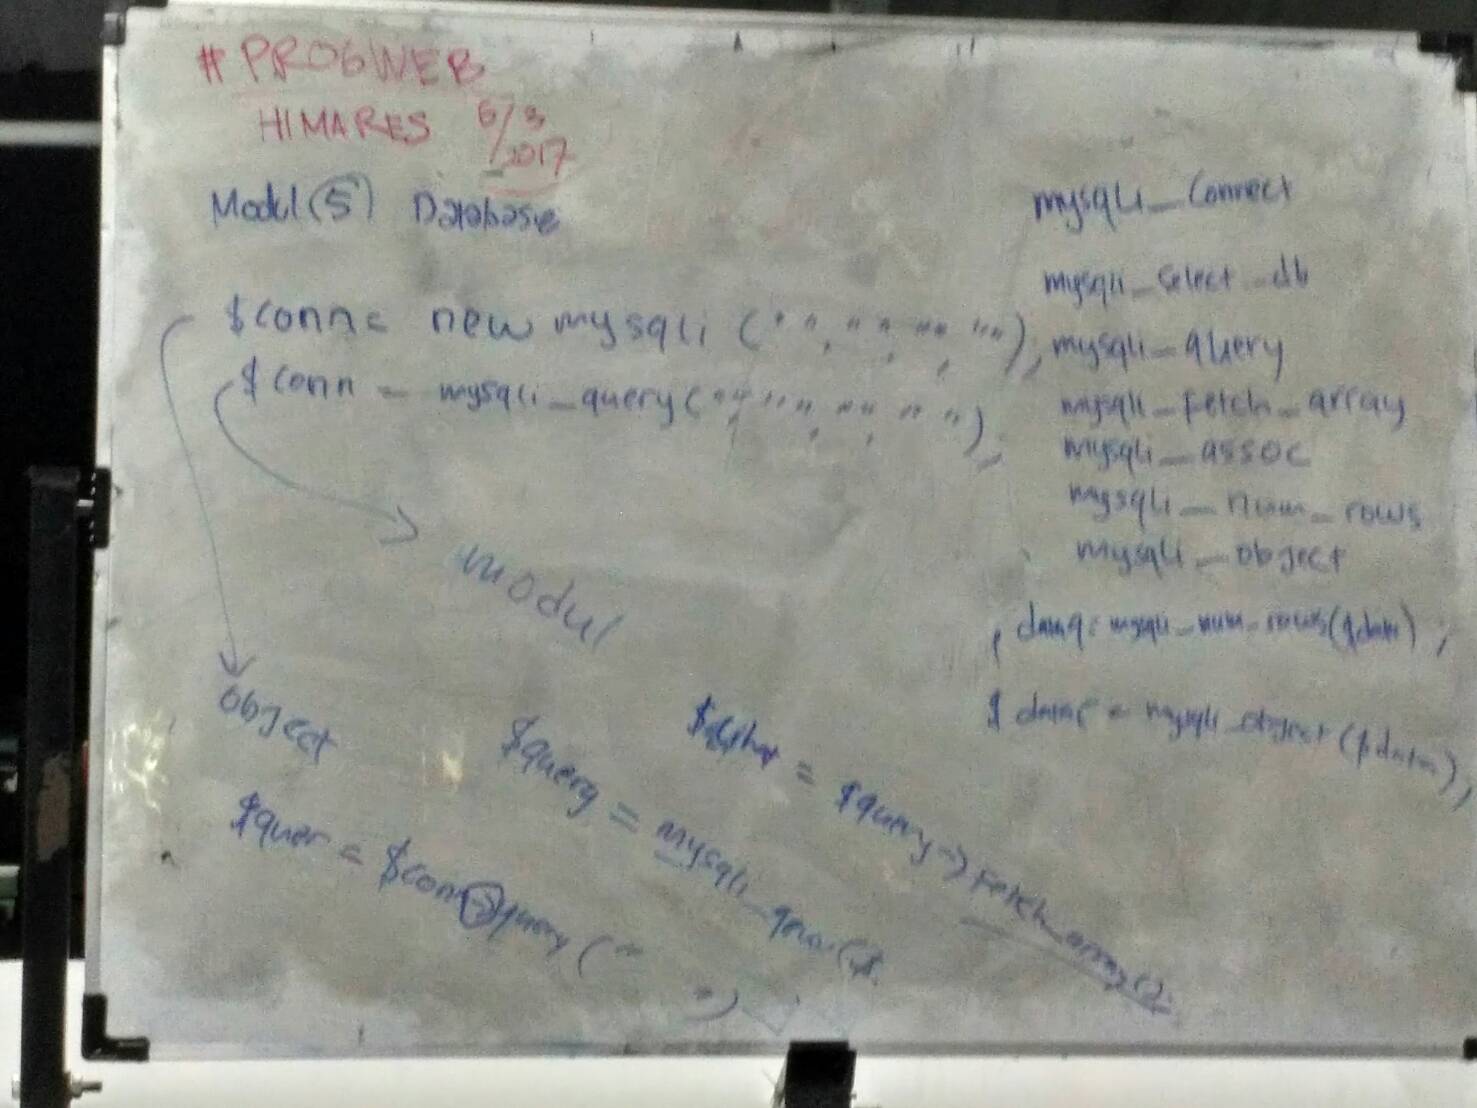 # PROGWEB
HIMARES 6/3/2017
Modul (5) Database
$conn = new mysqli (" ", " ", " ", " ");
$conn = mysqli_query (" ", " ", " ", " ");
modul
object
$quer = $conn->query (" ")
$query = mysqli_ ($
= $query -> Fetch_array();
mysqli_connect
mysqli_select_db
mysqli_query
mysqli_fetch_array
mysqli_assoc
mysqli_num_rows
mysqli_object
= mysqli_num_rows( );
$ = mysqli_object ($data);